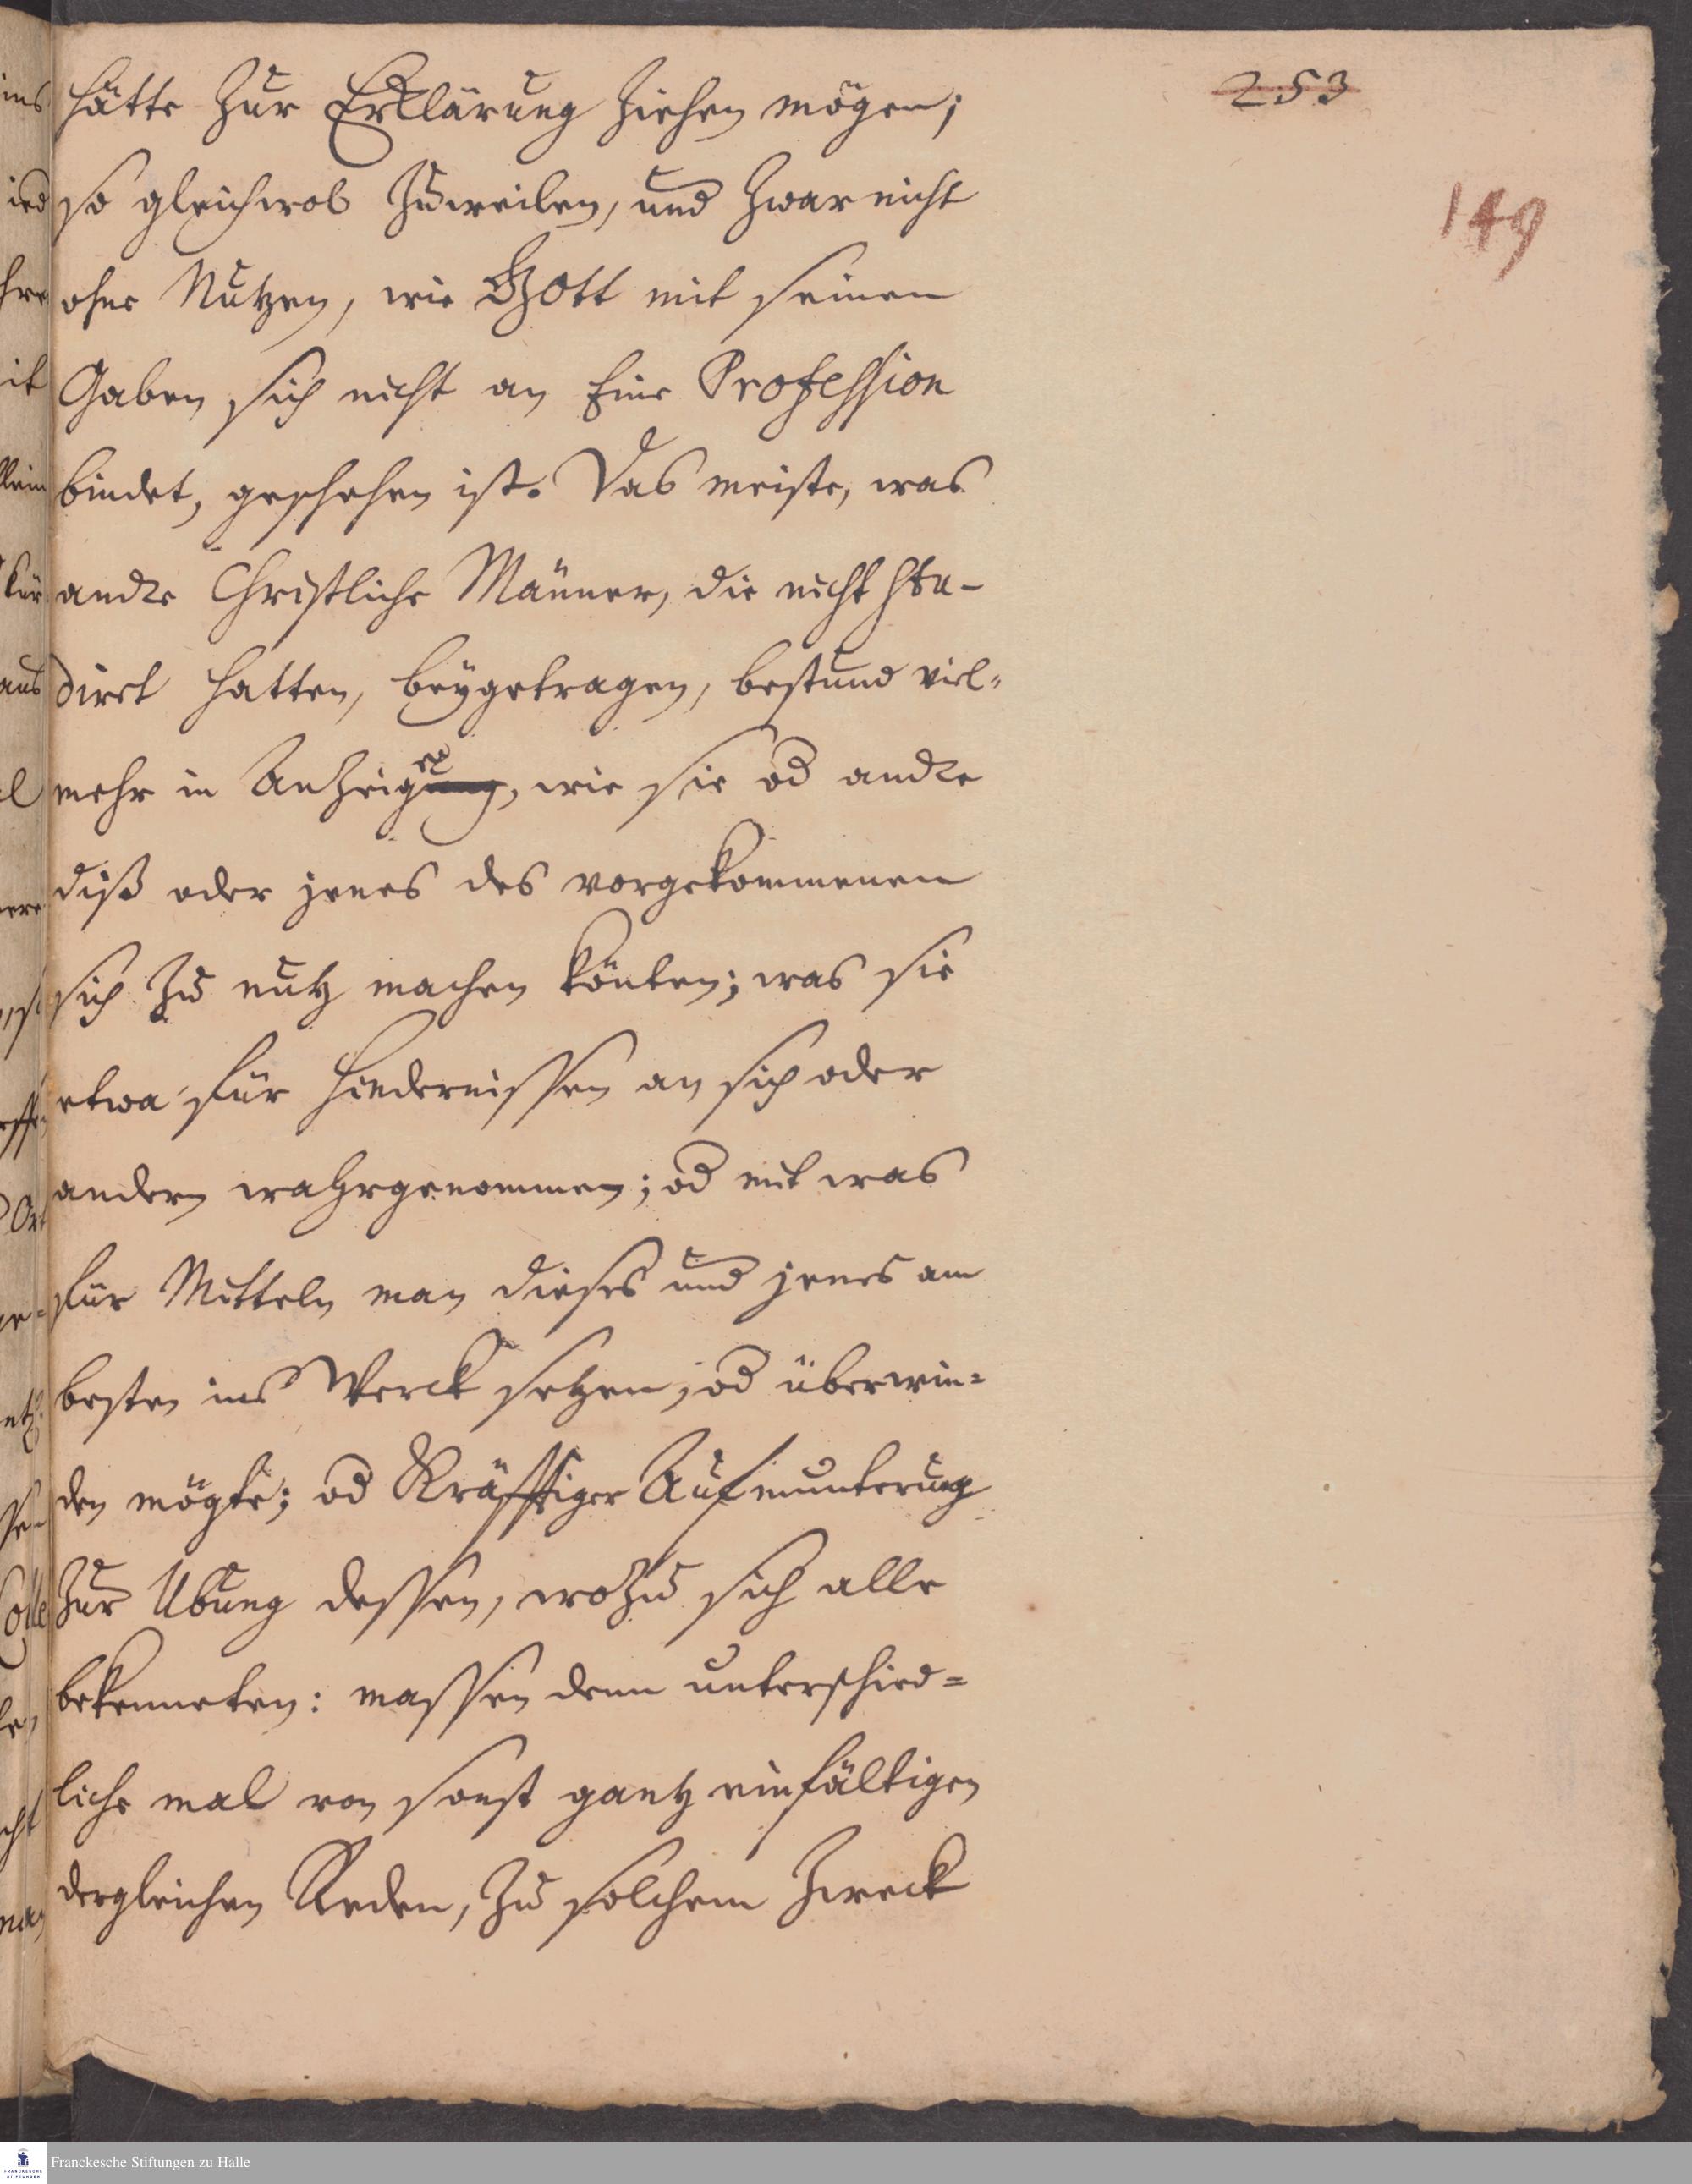 253
149
hätte zur Erklärung ziehen mögen;
so gleichwol zuweilen, und zwar nicht
ohne Nutzen, wie Gott mit seinen
Gaben sich nicht an Eine Profession
bindet, geschehen ist. Das meiste, was
andre Christliche Männer, die nicht stu-
dirt hatten, beygetragen, bestund viel-
mehr in Anzeigen, wie sie od andre
diß oder jenes des vorgekommenen
sich zu nutz machen könten; was sie
etwa für Hindernissen an sich oder
andern wahrgenommen; od mit was
für Mitteln man dieses und jenes am
besten ins Werck setzen, od überwin-
den mögte; od Kräfftiger Aufmunterung
zur Übung dessen, wozu sich alle
bekenneten: massen denn unterschied-
liche mal von sonst gantz einfältigen
dergleichen Reden, zu solchem Zweck
Franckesche Stiftungen zu Halle